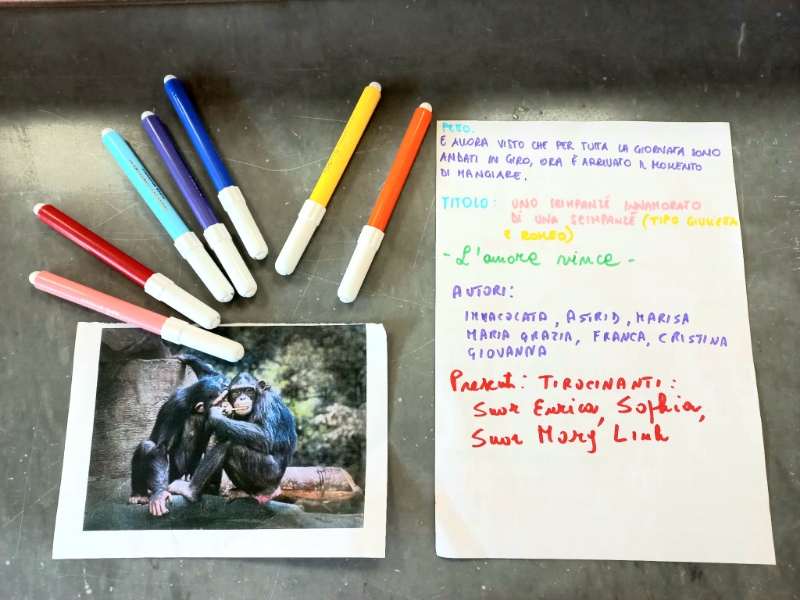 PELO.
E ALLORA VISTO CHE PER TUTTA LA GIORNATA SONO
ANDATI IN GIRO, ORA È ARRIVATO IL MOMENTO
DI MANGIARE.
TITOLO: UNO SCIMPANZÉ INNAMORATO
DI UNA SCIMPANZÉ (TIPO GIULIETTA
E ROMEO)
- L'amore vince -
AUTORI:
IMMACOLATA, ASTRID, MARISA
MARIA GRAZIA, FRANCA, CRISTINA
GIOVANNA
Presenti: TIROCINANTI:
Suor Enrica, Sophia,
Suor Mary Linh